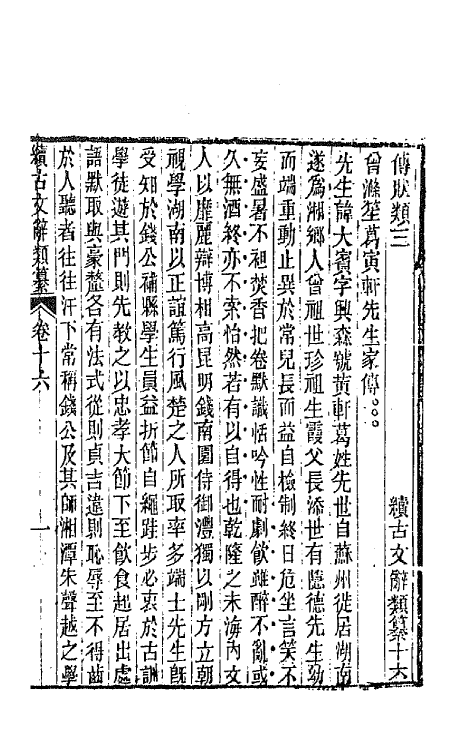 續古文辭類纂十六
傳狀類三
曾滌笙葛寅軒先生家傳○○○
先生諱大賓字興森號寅軒葛姓先世自蘇州徙居湖南
遂爲湘鄉人曾祖世珍祖生霞父長添世有隱德先生幼
而端重動止異於常兒長而益自檢制終日危坐言笑不
妄盛暑不袒焚香把卷默識恬吟性耐劇飲雖醉不亂或
久無酒終亦不索怡然若有以自得也乾隆之末海內文
人以靡麗辯博相高昆明錢南園侍御灃獨以剛方立朝
視學湖南以正誼篤行風楚之人所取率多端士先生旣
受知於錢公補縣學生員益折節自繩跬步必衷於古訓
學徒遊其門則先教之以忠孝大節下至飮食起居出處
語默取與豪氂各有法式從則貞吉違則恥辱至不得齒
於人聽者往往汗下常稱錢公及其師湘潭朱聲越之學
續古文辭類纂 卷十六 一